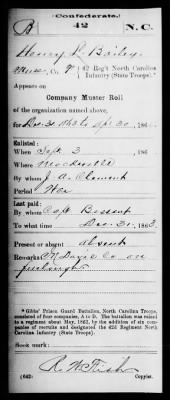 (Confederate.)
B 42 N.C.
Henry R Bailey
Musc, Co. F, 42 Reg't North Carolina
Infantry (State Troops).*
Appears on
Company Muster Roll
of the organization named above,
for Dec. 31 1863 to Apr 30, 186
Enlisted:
When Sept 3, 186
Where Mocksville
By whom J. A. Clement
Period War
Last paid:
By whom Capt. Bessent
To what time Dec. 31, 1863.
Present or absent absent
Remarks: Davie Co on
furlough
* Gibbs' Prison Guard Battalion, North Carolina Troops,
consisted of four companies, A to D. The battalion was raised
to a regiment about May, 1862, by the addition of six com-
panies of recruits and designated the 42d Regiment North
Carolina Infantry (State Troops).
Book mark:
(642)
Copyist.